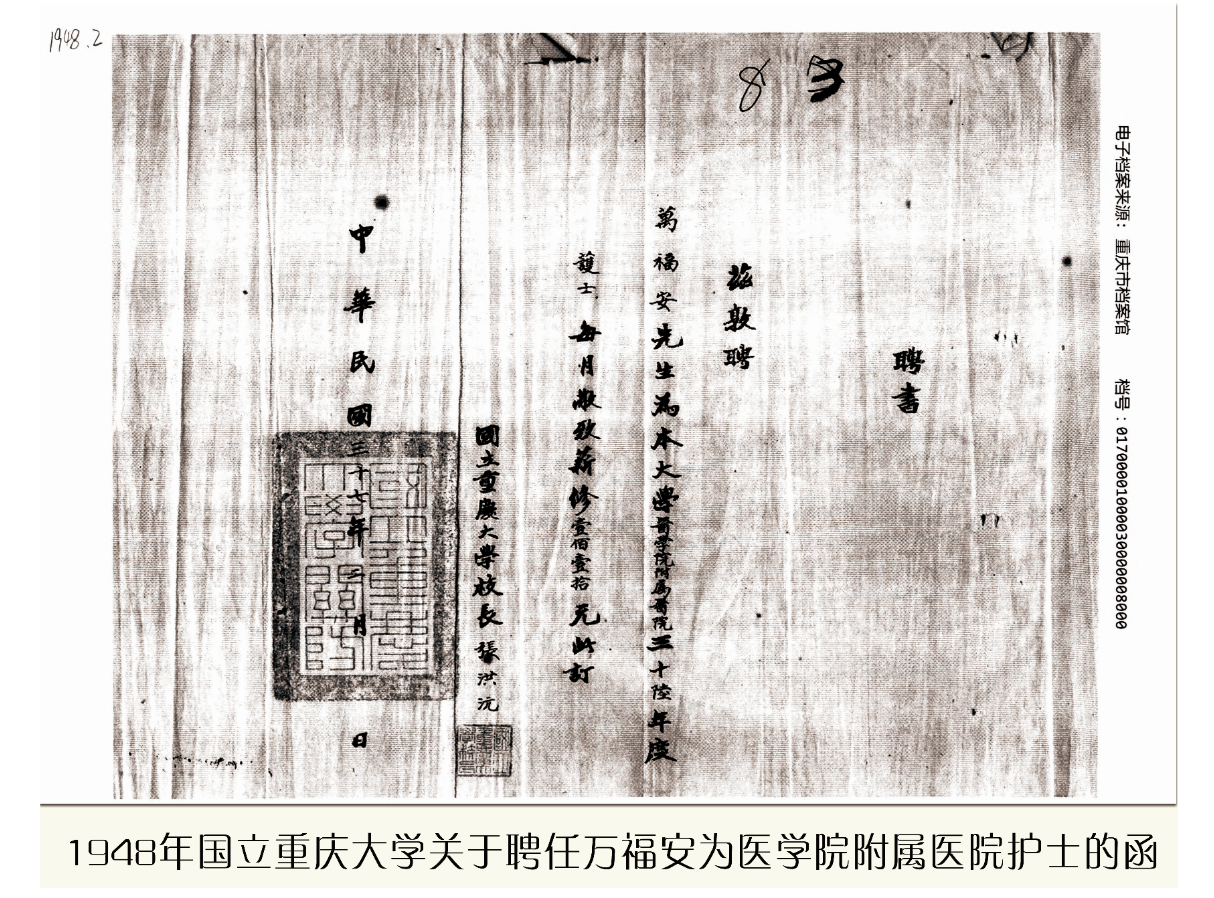 1948.2
8 3
聘書
茲敦聘
萬福安先生為本大學醫學院附屬醫院三十陸年度
護士每月敬致薪修壹佰壹拾元此訂
國立重慶大學校長張洪沅
中華民國三十七年二月 日
电子档案来源：重庆市档案馆 档号：01700001000030000008000
1948年国立重庆大学关于聘任万福安为医学院附属医院护士的函